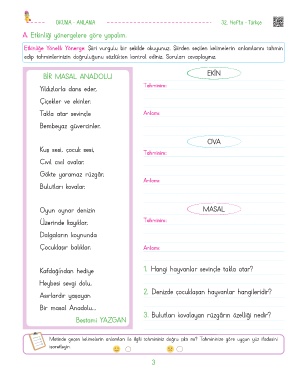 OKUMA - ANLAMA
32. Hafta - Türkçe
A. Etkinliği yönergelere göre yapalım.
Etkinliğe Yönelik Yönerge: Şiiri vurgulu bir şekilde okuyunuz. Şiirden seçilen kelimelerin anlamlarını tahmin
edip tahminlerinizin doğruluğunu sözlükten kontrol ediniz. Soruları cevaplayınız.
BİR MASAL ANADOLU
Yıldızlarla dans eder,
Çiçekler ve ekinler.
Takla atar sevinçle
Bembeyaz güvercinler.
Kuş sesi, çocuk sesi,
Cıvıl cıvıl ovalar.
Gökte yaramaz rüzgâr,
Bulutları kovalar.
Oyun oynar denizin
Üzerinde kayıklar.
Dalgaların koynunda
Çocuklaşır balıklar.
Kafdağından hediye
Heybesi sevgi dolu,
Asırlardır yaşayan
Bir masal Anadolu...
Bestami YAZGAN
EKİN
Tahminim:
Anlamı:
OVA
Tahminim:
Anlamı:
MASAL
Tahminim:
Anlamı:
1. Hangi hayvanlar sevinçle takla atar?
2. Denizde çocuklaşan hayvanlar hangileridir?
3. Bulutları kovalayan rüzgârın özelliği nedir?
Metinde geçen kelimelerin anlamları ile ilgili tahminimiz doğru çıktı mı? Tahminimize göre uygun yüz ifadesini
işaretleyin.
3